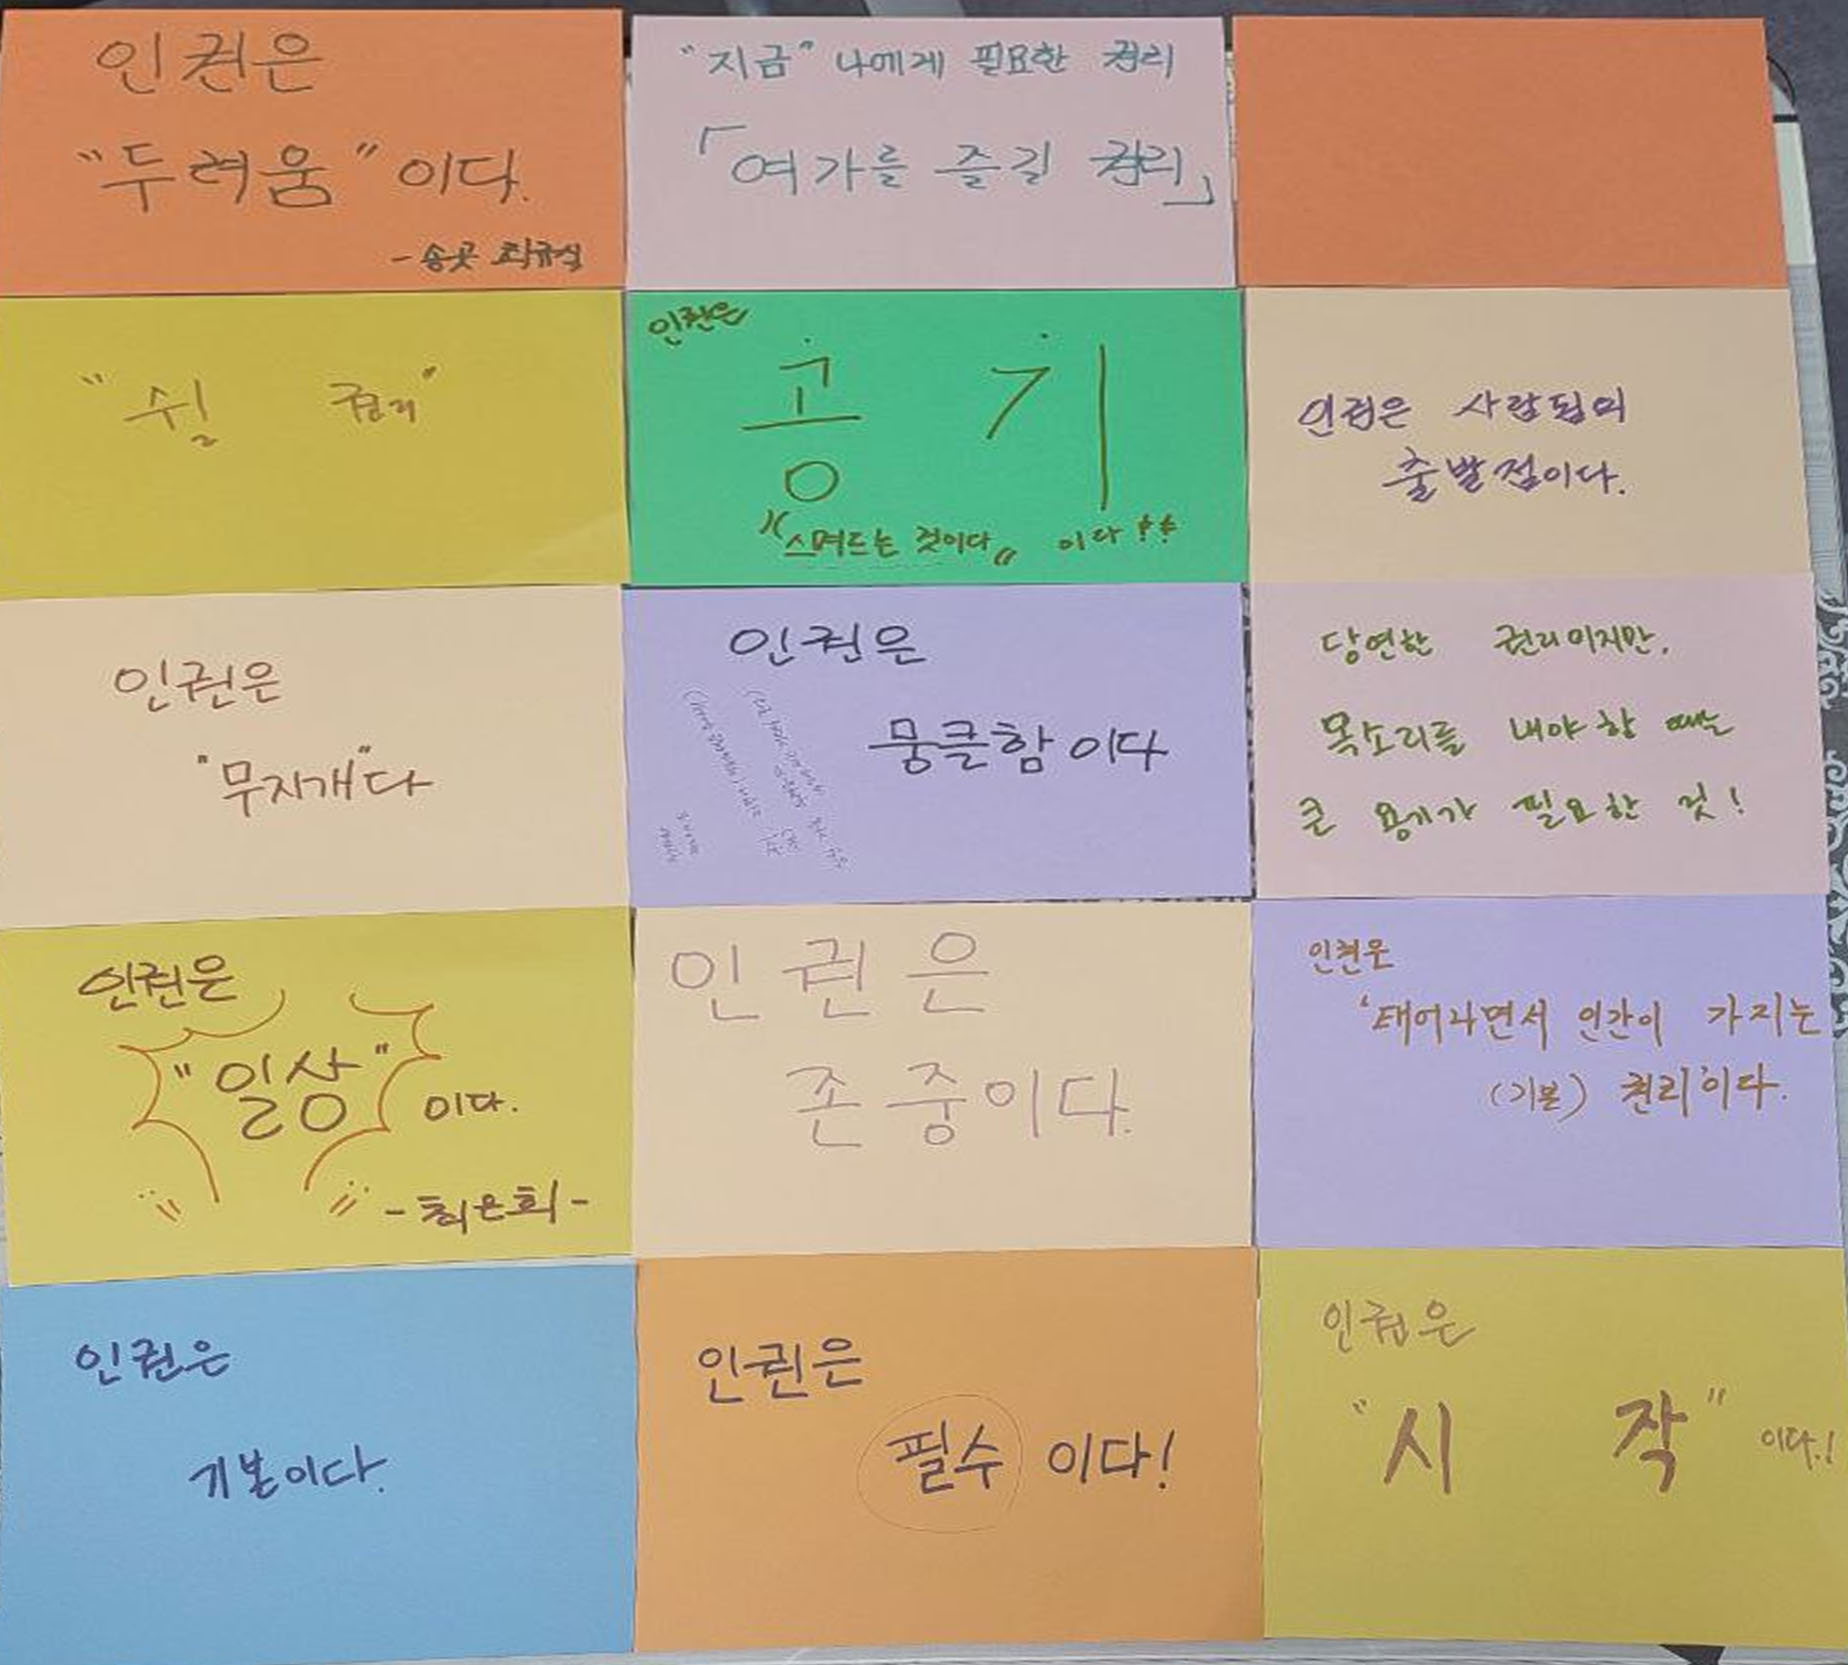 인권은
"두려움"이다.
"지금" 나에게 필요한 권리
「여가를 즐길 권리」
"쉴 권리"
인권은
공기
"스며드는 것이다" 이다!!
인권은 사람됨의
출발점이다.
인권은
"무지개"다
인권은
뭉클함이다
당연한 권리이지만,
목소리를 내야 할 때는
큰 용기가 필요한 것!
인권은
"일상"이다.
-최은희-
인권은
존중이다.
인권은
'태어나면서 인간이 가지는
(기본) 권리'이다.
인권은
기본이다.
인권은
필수이다!
인권은
"시작"이다.!